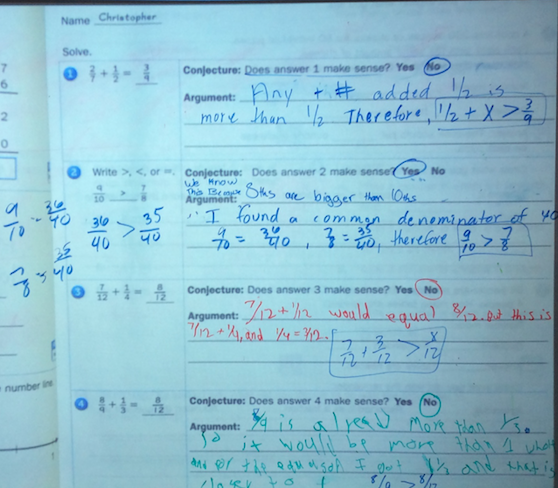 Name Christopher
Solve.
1 2/7 + 1/2 = 3/9
Conjecture: Does answer 1 make sense? Yes No
Argument: Any + # added 1/2 is
more than 1/2 Therefore, 1/2 + x > 3/9
2 Write >, <, or =.
9/10 > 7/8
36/40 > 35/40
Conjecture: Does answer 2 make sense? Yes No
We Know This Because 8ths are bigger than 10ths
Argument:
I found a common denominator of 40
9/10 = 36/40, 7/8 = 35/40, therefore 9/10 > 7/8
9/10 = 36/40
7/8 = 35/40
3 7/12 + 1/4 = 8/12
Conjecture: Does answer 3 make sense? Yes No
Argument: 7/12 + 1/12 would equal 8/12. But this is
7/12 + 1/4, and 1/4 = 3/12.
7/12 + 3/12 > 8/12
4 8/9 + 1/3 = 8/12
Conjecture: Does answer 4 make sense? Yes No
Argument: 8/9 is already more than 1/3.
So it would be more than 1 whole
of the I got and that is
closer to
7
6
2
0
number line